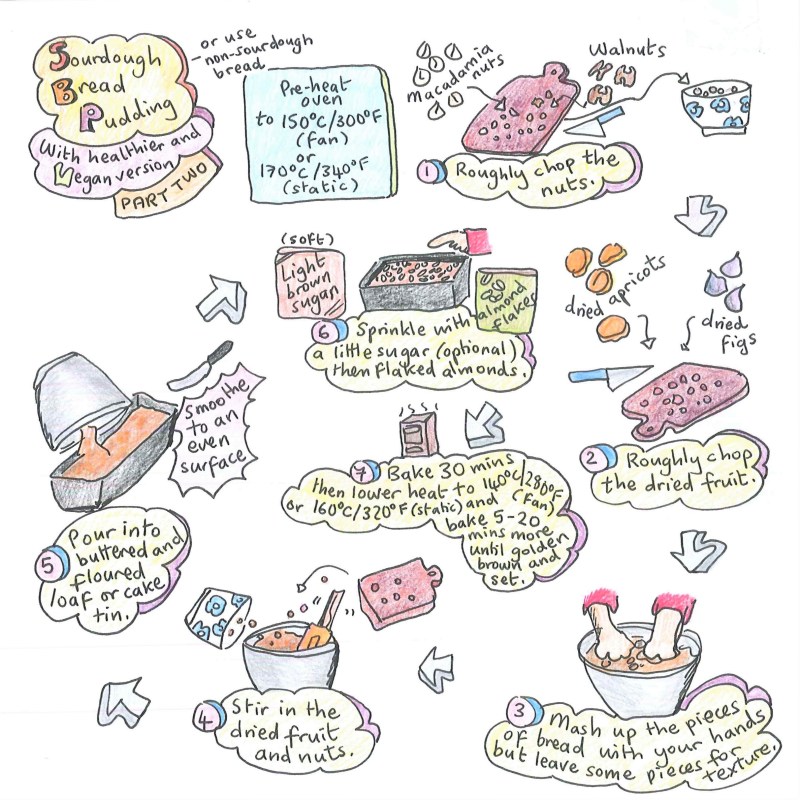 Sourdough
Bread
Pudding
With healthier and
Vegan version
PART TWO
or use
non-sourdough
bread
Pre-heat
oven
to 150°C/300°F
(fan)
or
170°C/340°F
(static)
macadamia
nuts
Walnuts
1 Roughly chop the
nuts.
dried apricots
dried
figs
2 Roughly chop
the dried fruit.
3 Mash up the pieces
of bread with your hands
but leave some pieces for
texture.
4 Stir in the
dried fruit
and nuts.
5 Pour into
buttered and
floured
loaf or cake
tin.
Smoothe
to an
even
surface
(soft)
Light
brown
sugar
almond
flakes
6 Sprinkle with
a little sugar (optional)
then flaked almonds.
7 Bake 30 mins
then lower heat to 140°C/280°F
(fan)
or 160°C/320°F (static) and
bake 5-20
mins more
until golden
brown and
set.